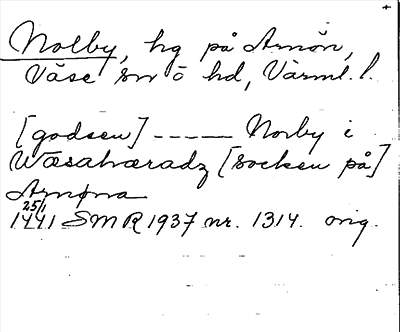 Nolby, hg på Arnön,
Väse sn o hd, Värml. l.
[godsen] ----- Norby i
Wæsahæradz [socken på]
Arnøna
25/1
1441 SMR 1937 nr. 1314. orig.